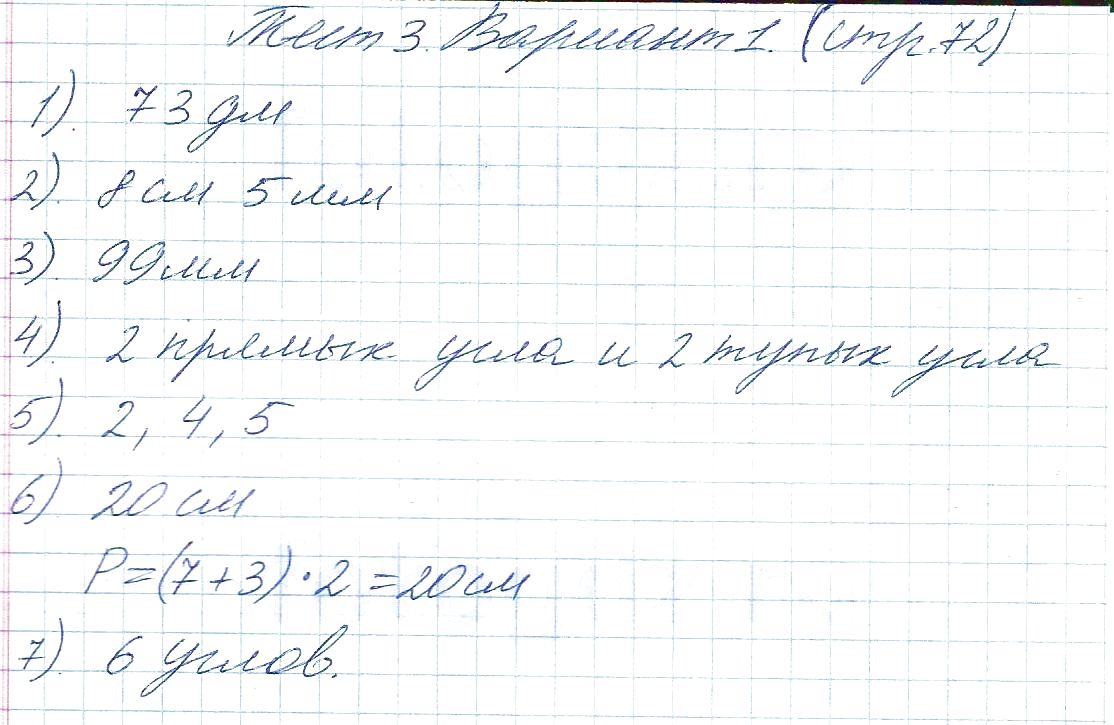 Тест 3. Вариант 1. (стр. 72)
1). 73 дм
2). 8 см 5 мм
3). 99 мм
4). 2 прямых угла и 2 тупых угла
5). 2, 4, 5
6) 20 см
P=(7+3)·2=20см
7). 6 углов.